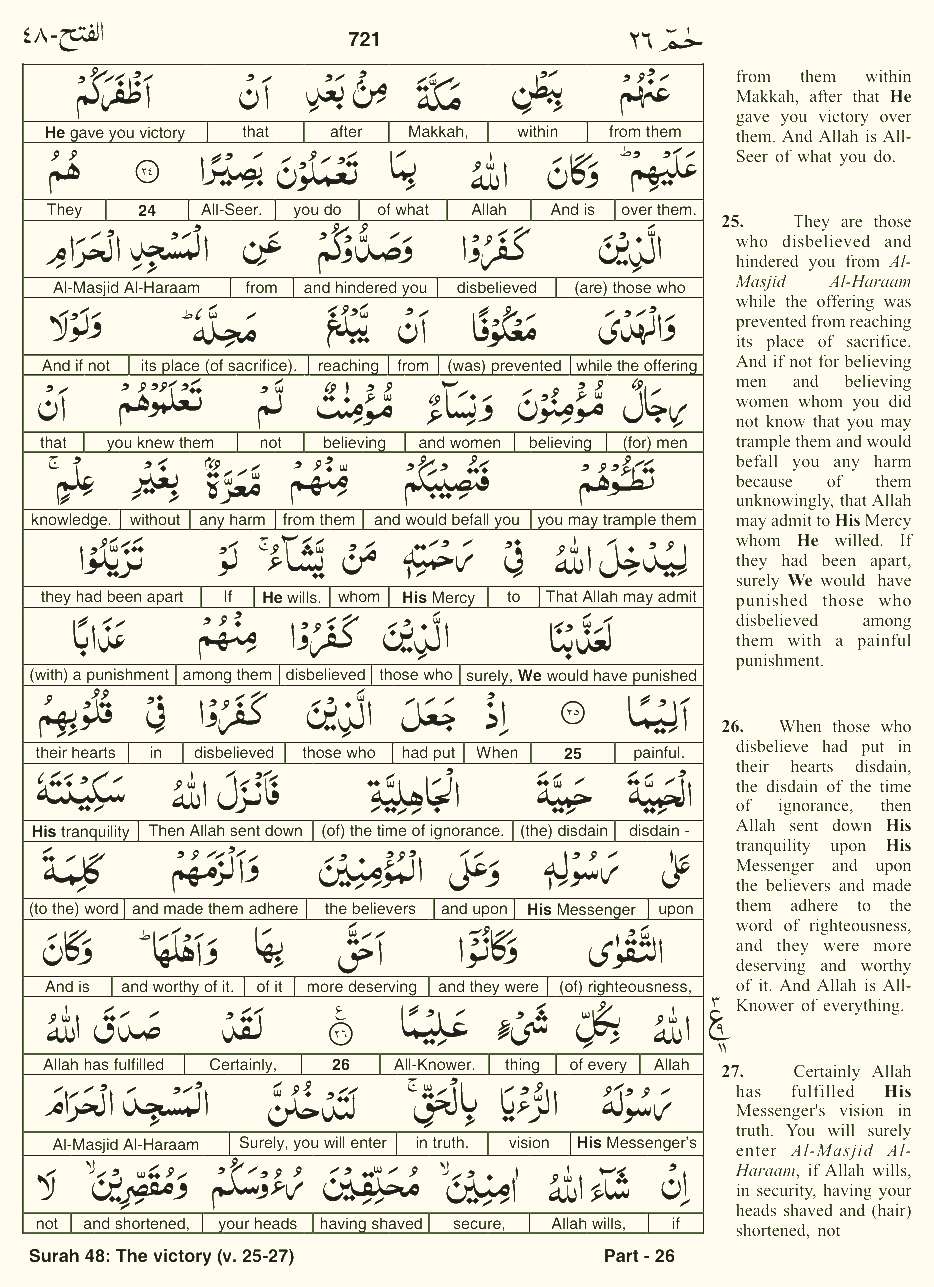 الفتح-٤٨ 721 حٰمٓ ٢٦
عَنْهُمْ بِبَطْنِ مَكَّةَ مِنْۢ بَعْدِ اَنْ اَظْفَرَكُمْ
from them within Makkah, after that He gave you victory
عَلَيْهِمْ ؕ وَكَانَ اللّٰهُ بِمَا تَعْمَلُوْنَ بَصِيْرًا ٢٤ هُمُ
over them. And is Allah of what you do All-Seer. 24 They
الَّذِيْنَ كَفَرُوْا وَصَدُّوْكُمْ عَنِ الْمَسْجِدِ الْحَرَامِ
(are) those who disbelieved and hindered you from Al-Masjid Al-Haraam
وَالْهَدْىَ مَعْكُوْفًا اَنْ يَّبْلُغَ مَحِلَّهٗ ؕ وَلَوْلَا
while the offering (was) prevented from reaching its place (of sacrifice). And if not
رِجَالٌ مُّؤْمِنُوْنَ وَنِسَآءٌ مُّؤْمِنٰتٌ لَّمْ تَعْلَمُوْهُمْ اَنْ
(for) men believing and women believing not you knew them that
تَطَـُٔوْهُمْ فَتُصِيْبَكُمْ مِّنْهُمْ مَّعَرَّةٌۢ بِغَيْرِ عِلْمٍ ۚ
you may trample them and would befall you from them any harm without knowledge.
لِيُدْخِلَ اللّٰهُ فِىْ رَحْمَتِهٖ مَنْ يَّشَآءُ ۚ لَوْ تَزَيَّلُوْا
That Allah may admit to His Mercy whom He wills. If they had been apart
لَعَذَّبْنَا الَّذِيْنَ كَفَرُوْا مِنْهُمْ عَذَابًا
surely, We would have punished those who disbelieved among them (with) a punishment
اَلِيْمًا ٢٥ اِذْ جَعَلَ الَّذِيْنَ كَفَرُوْا فِىْ قُلُوْبِهِمُ
painful. 25 When had put those who disbelieved in their hearts
الْحَمِيَّةَ حَمِيَّةَ الْجَاهِلِيَّةِ فَاَنْزَلَ اللّٰهُ سَكِيْنَتَهٗ
disdain - (the) disdain (of) the time of ignorance. Then Allah sent down His tranquility
عَلٰى رَسُوْلِهٖ وَعَلَى الْمُؤْمِنِيْنَ وَاَلْزَمَهُمْ كَلِمَةَ
upon His Messenger and upon the believers and made them adhere (to the) word
التَّقْوٰى وَكَانُوْۤا اَحَقَّ بِهَا وَاَهْلَهَا ؕ وَكَانَ
(of) righteousness, and they were more deserving of it and worthy of it. And is
اللّٰهُ بِكُلِّ شَىْءٍ عَلِيْمًا ٢٦ ع لَقَدْ صَدَقَ اللّٰهُ
Allah of every thing All-Knower. 26 Certainly, Allah has fulfilled
رَسُوْلَهُ الرُّءْيَا بِالْحَقِّ ۚ لَتَدْخُلُنَّ الْمَسْجِدَ الْحَرَامَ
His Messenger's vision in truth. Surely, you will enter Al-Masjid Al-Haraam
اِنْ شَآءَ اللّٰهُ اٰمِنِيْنَ ۙ مُحَلِّقِيْنَ رُءُوْسَكُمْ وَمُقَصِّرِيْنَ ۙ لَا
if Allah wills, secure, having shaved your heads and shortened, not
from them within
Makkah, after that He
gave you victory over
them. And Allah is All-
Seer of what you do.
25. They are those
who disbelieved and
hindered you from Al-
Masjid Al-Haraam
while the offering was
prevented from reaching
its place of sacrifice.
And if not for believing
men and believing
women whom you did
not know that you may
trample them and would
befall you any harm
because of them
unknowingly, that Allah
may admit to His Mercy
whom He willed. If
they had been apart,
surely We would have
punished those who
disbelieved among
them with a painful
punishment.
26. When those who
disbelieve had put in
their hearts disdain,
the disdain of the time
of ignorance, then
Allah sent down His
tranquility upon His
Messenger and upon
the believers and made
them adhere to the
word of righteousness,
and they were more
deserving and worthy
of it. And Allah is All-
Knower of everything.
٣
ع ٩
١١
27. Certainly Allah
has fulfilled His
Messenger's vision in
truth. You will surely
enter Al-Masjid Al-
Haraam, if Allah wills,
in security, having your
heads shaved and (hair)
shortened, not
Surah 48: The victory (v. 25-27) Part - 26